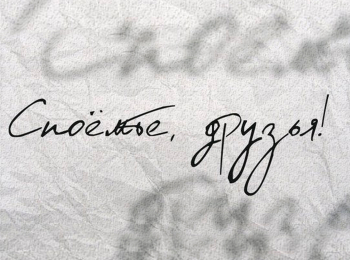 Споёмте, друзья!